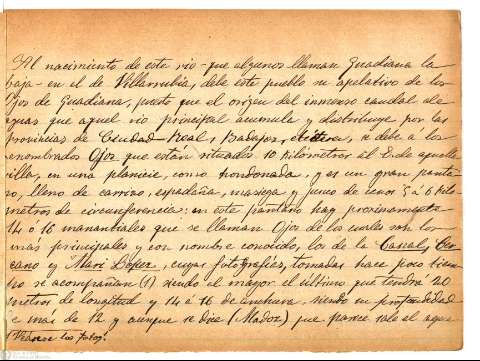 Al nacimiento de este rio - que algunos llaman Guadiana la
baja - en el de Villarrubia, debe este pueblo su apelativo de los
Ojos de Guadiana, puesto que el origen del inmenso caudal de
aguas que aquel rio principal acumula y distribuye por las
provincias de Ciudad-Real, Badajoz, etcétera, se debe á los
renombrados Ojos que están situados 10 kilometros al E. de aquella
villa, en una planicie, como hondonada, y es un gran panta-
no, lleno de carrizo, espadaña, masiega y junco de unos 5 á 6 kiló-
metros de circunferencia: en este pantano hay proximamente
14 ó 16 manantiales que se llaman Ojos de los cuales son los
más principales y con nombre conocido, los de la Canal, Cer-
cano y Mari Lopez, cuyas fotografias, tomadas hace poco tiem-
po se acompañan (1) siendo el mayor el último que tendrá 20
metros de longitud y 14 á 16 de anchura, siendo su profundidad
de más de 12 y aunque se dice (Madoz) que parece sale el agua
Véanse las fotog.